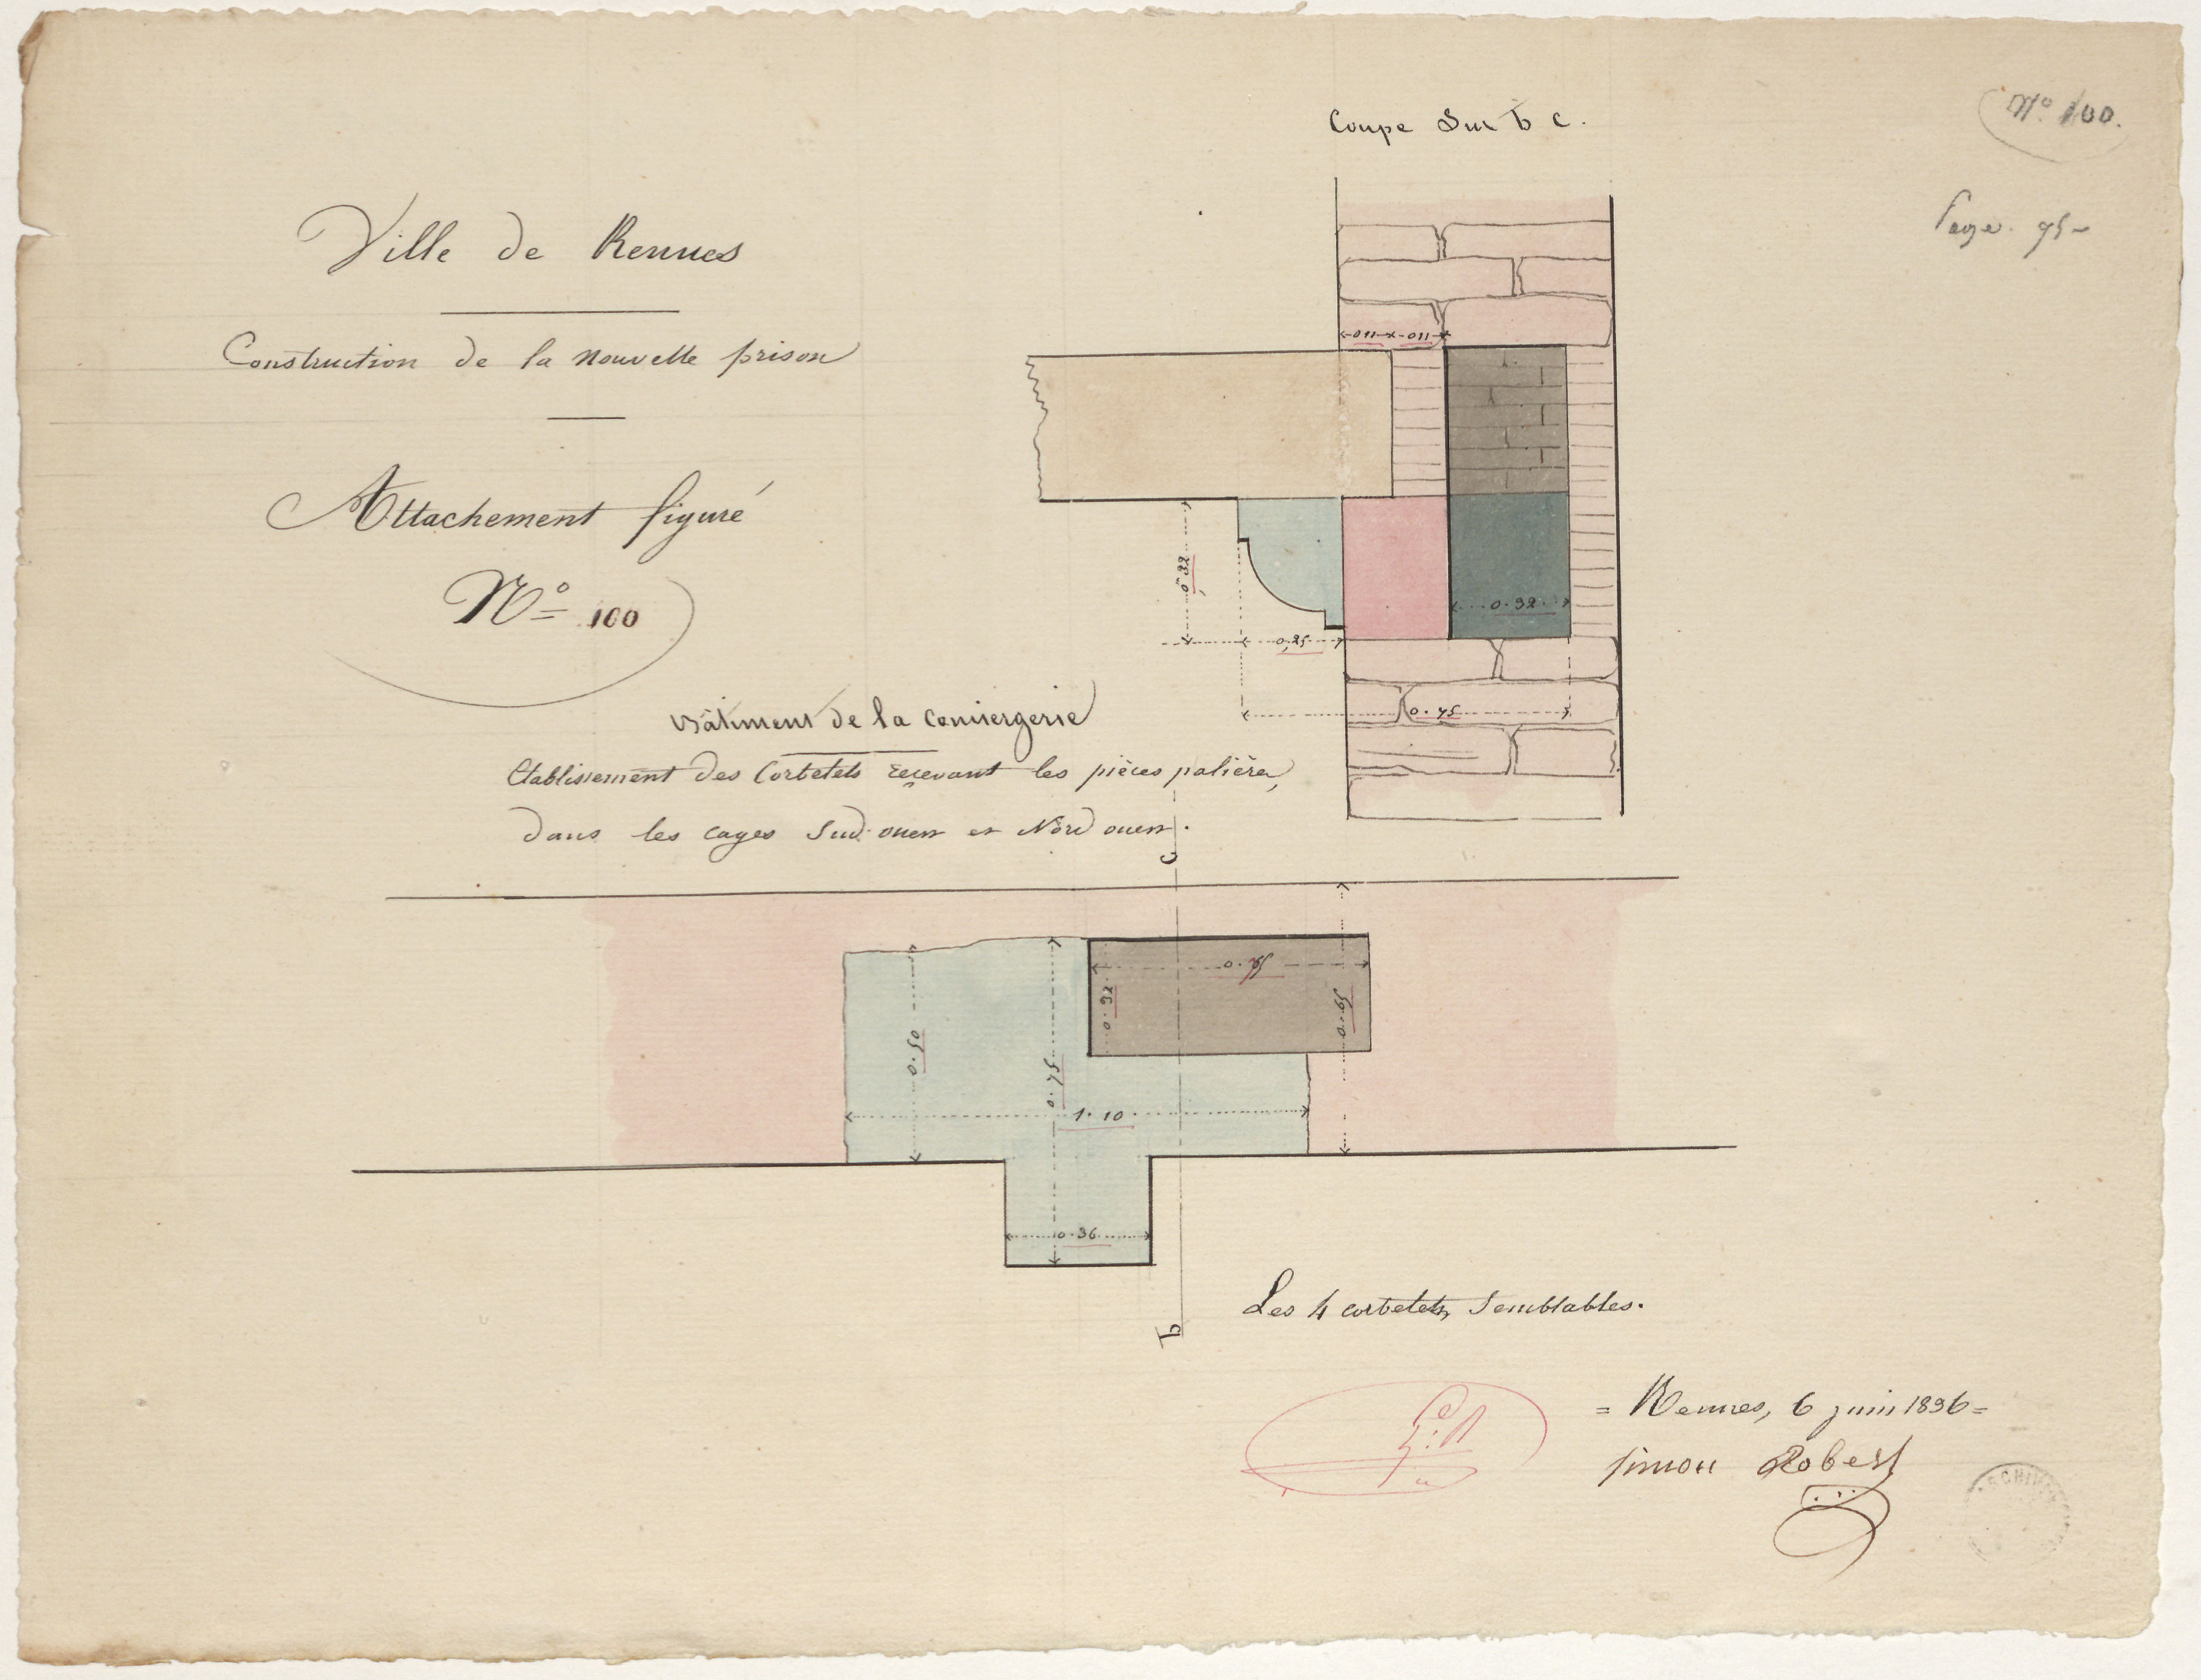 Coupe Sur b c.
N° 100.
Page. 75-
Ville de Rennes
Construction de la nouvelle prison
Attachement figuré
N° 100
Bâtiment de la Conciergerie
Etablissement des Corbelets recevant les pièces palières,
dans les cages Sud-ouest et Nord ouest.
011 011
0.32
0.32
0,25
0.75
c
0.75
0.32
0.50
0.75
0.65
1.10
0.36
b
Les 4 corbelets semblables.
= Rennes, 6 juin 1896 =
Simon Robert
ARCHIV